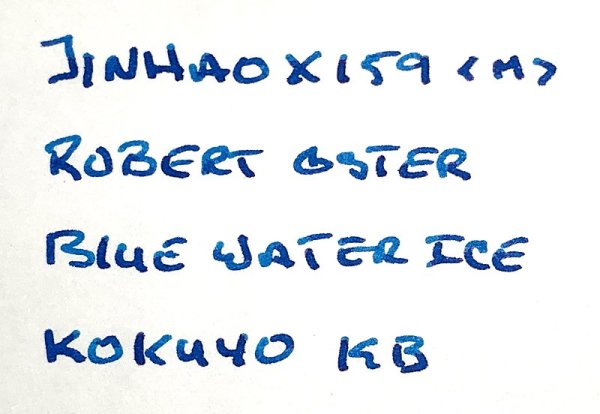 JINHAO X159 <M>
ROBERT OSTER
BLUE WATER ICE
KOKUYO KB